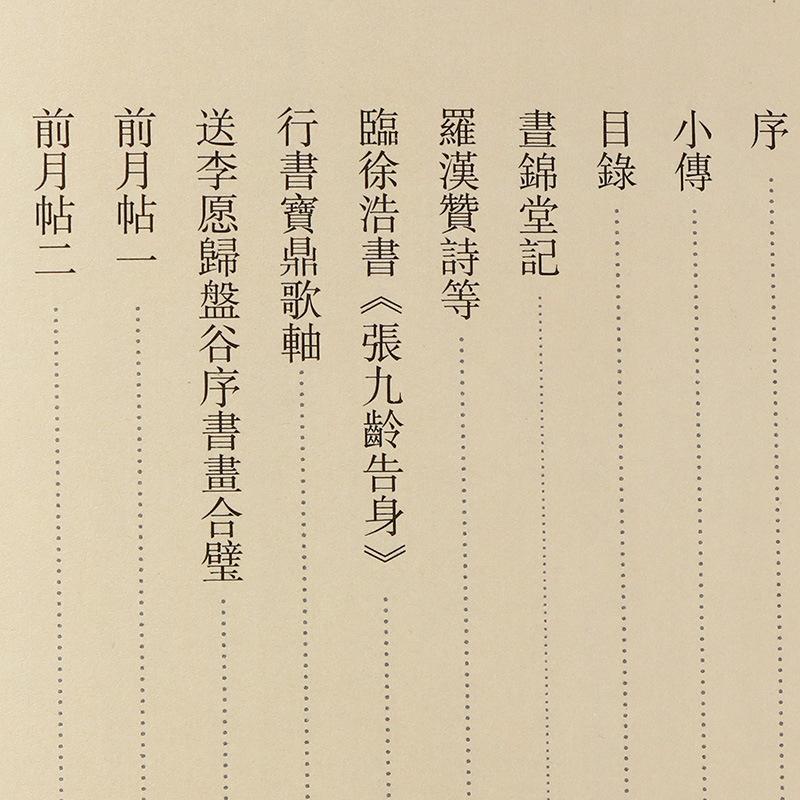 序
小傳
目錄
晝錦堂記
羅漢贊詩等
臨徐浩書《張九齡告身》
行書寶鼎歌軸
送李愿歸盤谷序書畫合璧
前月帖一
前月帖二